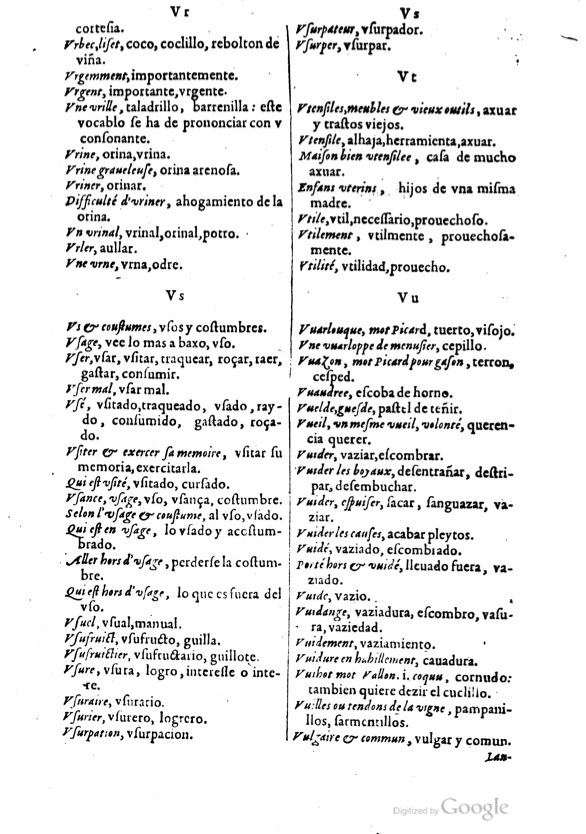 Vr
cortesia.
Vrbec,liset, coco, coclillo, rebolton de
viña.
Vrgemment, importantemente.
Vrgent, importante,vrgente.
Vne vrille, taladrillo, barrenilla : este
vocablo se ha de prononciar con v
consonante.
Vrine, orina,vrina.
Vrine graueleuse, orina arenosa.
Vriner, orinar.
Difficulté d'vriner, ahogamiento de la
orina.
Vn vrinal, vrinal,orinal,potro.
Vrler, aullar.
Vne vrne, vrna,odre.
Vs
Vs & coustumes, vsos y costumbres.
Vsage, vee lo mas a baxo, vso.
Vser,vsar, vsitar, traquear, roçar, raer,
gastar, consumir.
Vser mal, vsar mal.
Vsé, vsitado,traqueado, vsado, ray-
do, consumido, gastado, roça-
do.
Vsiter & exercer sa memoire, vsitar su
memoria,exercitarla.
Qui est vsité, vsitado, cursado.
Vsance, vsage, vso, vsança, costumbre.
Selon l'vsage & coustume, al vso,vsado.
Qui est en vsage, lo vsado y accstum-
brado.
Aller hors d'vsage, perderse la costum-
bre.
Qui est hors d'vsage, lo que es fuera del
vso.
Vsuel, vsual,manual.
Vsufruict, vsufructo, guilla.
Vsufruictier, vsufructario, guillote.
Vsure, vsura, logro, interesse o inte-
re.
Vsuraire, vsurario.
Vsurier, vsurero, logrero.
Vsurpation, vsurpacion.
Vs
Vsurpateur, vsurpador.
Vsurper, vsurpar.
Vt
Vtensiles,meubles & vieux outils, axuar
y trastos viejos.
Vtensile, alhaja,herramienta,axuar.
Maison bien vtensilee, casa de mucho
axuar.
Enfans vterins, hijos de vna misma
madre.
Vtile,vtil,necessario,prouechoso.
Vtilement, vtilmente, prouechosa-
mente.
Vtilité, vtilidad,prouecho.
Vu
Vuarlouque, mot Picard, tuerto, visojo.
Vne vuarloppe de menusier, cepillo.
Vuazon, mot Picard pour gason, terron,
cesped.
Vuaudree, escoba de horno.
Vuelde,guesde, pastel de teñir.
Vueil, vn mesme vueil, volonté, queren-
cia querer.
Vuider, vaziar,escombrar.
Vuider les boyaux, desentrañar, destri-
par, desembuchar.
Vuider, espuiser, sacar, sanguazar, va-
ziar.
Vuider les causes, acabar pleytos.
Vuidé, vaziado, escombrado.
Porté hors & vuidé, lleuado fuera, va-
ziado.
Vuide, vazio.
Vuidange, vaziadura, escombro, vasu-
ra, vaziedad.
Vuidement, vaziamiento.
Vuidure en habillement, cauadura.
Vuihot mot Vallon. i. coquu, cornudo:
tambien quiere dezir el cuclillo.
Vuilles ou tendons de la vigne, pampani-
llos, sarmentillos.
Vulgaire & commun, vulgar y comun.
Lan-
Digitized by Google